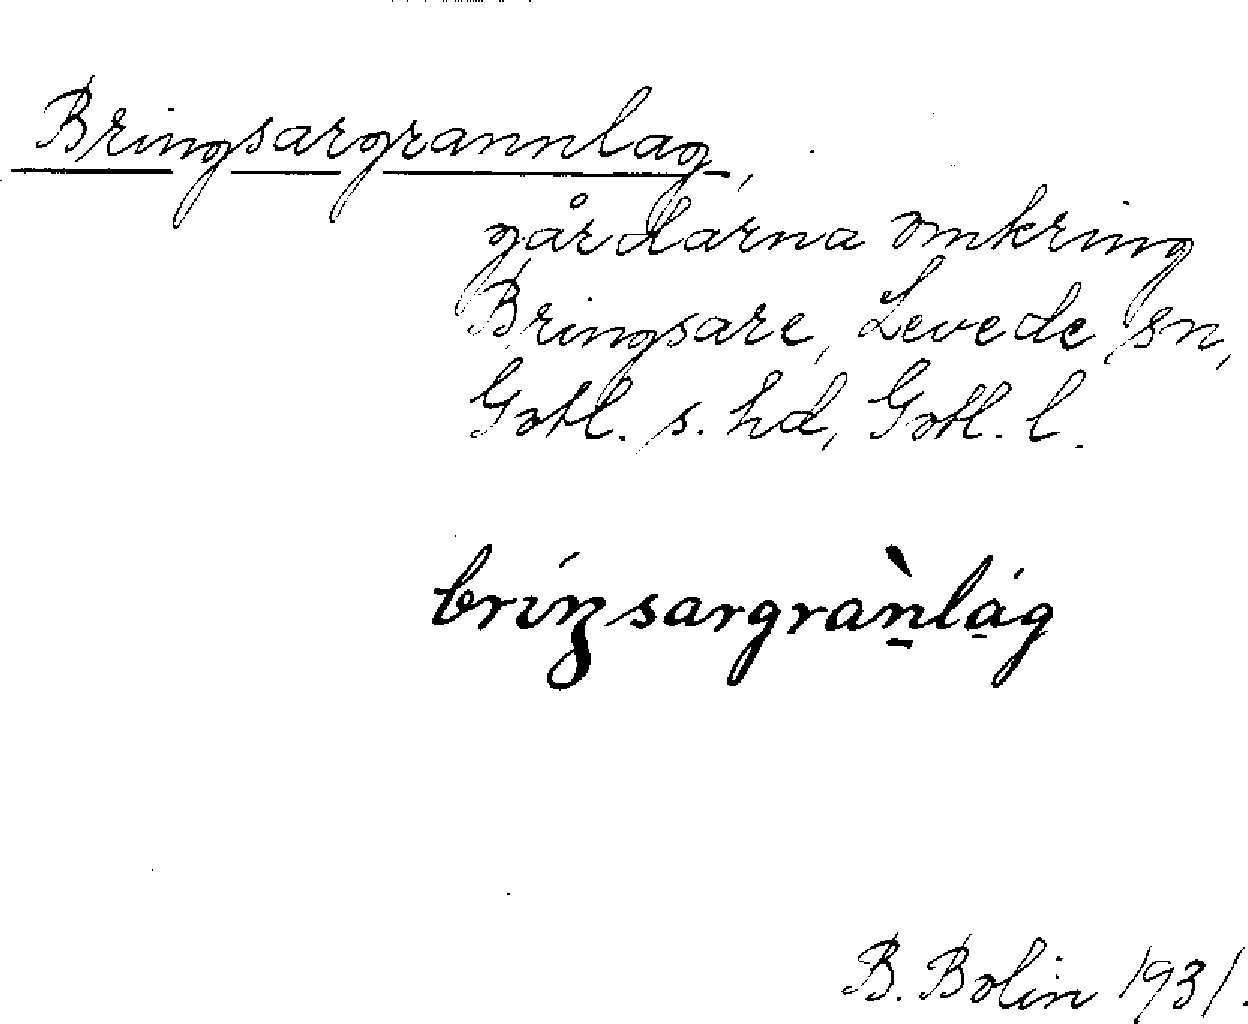 Bringsargrannlag,
gårdarna omkring
Bringsare, Levede sn,
Gotl. s. hd, Gotl. l.
bríŋsargràn̠lá̠g
B. Bolin 1931.